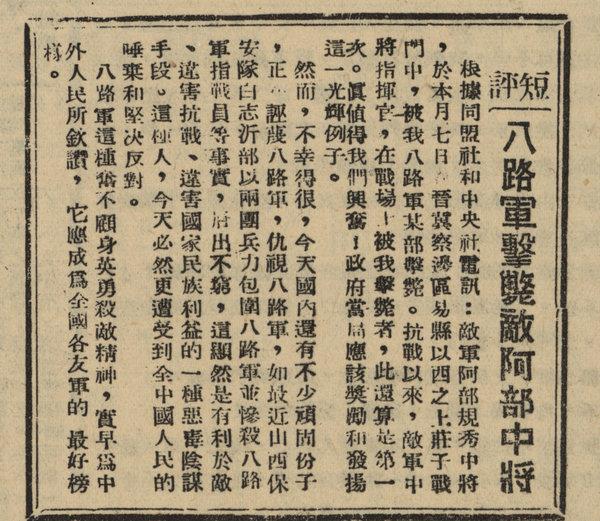 短評
八路軍擊斃敵阿部中將
根據同盟社和中央社電訊：敵軍阿部規秀中將
，於本月七日在晉冀察邊區易縣以西之上莊子戰
鬥中，被我八路軍某部擊斃。抗戰以來，敵軍中
將指揮官，在戰場上被我擊斃者，此還算是第一
次。眞値得我們興奮！政府當局應該獎勵和發揚
這一光輝例子。
然而，不幸得很，今天國內還有不少頑固份子
，正在誣蔑八路軍，仇視八路軍，如最近山西保
安隊白志沂部以兩團兵力包圍八路軍並慘殺八路
軍指戰員等事實，層出不窮，這顯然是有利於敵
、違害抗戰、違害國家民族利益的一種惡毒陰謀
手段。這種人，今天必然更遭受到全中國人民的
唾棄和堅决反對。
八路軍這種奮不顧身英勇殺敵精神，實早爲中
外人民所欽讚，它應成爲全國各友軍的 最好榜
樣。